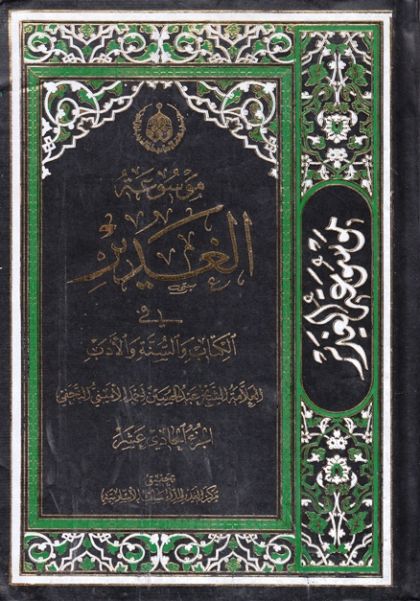 موسوعة
الغدير
في
الكتاب والسنة والأدب
العلامة الشيخ عبد الحسين أحمد الأميني النجفي
الجزء الحادي عشر
تحقيق
مركز الغدير للدراسات الإسلامية
موسوعة الغدير